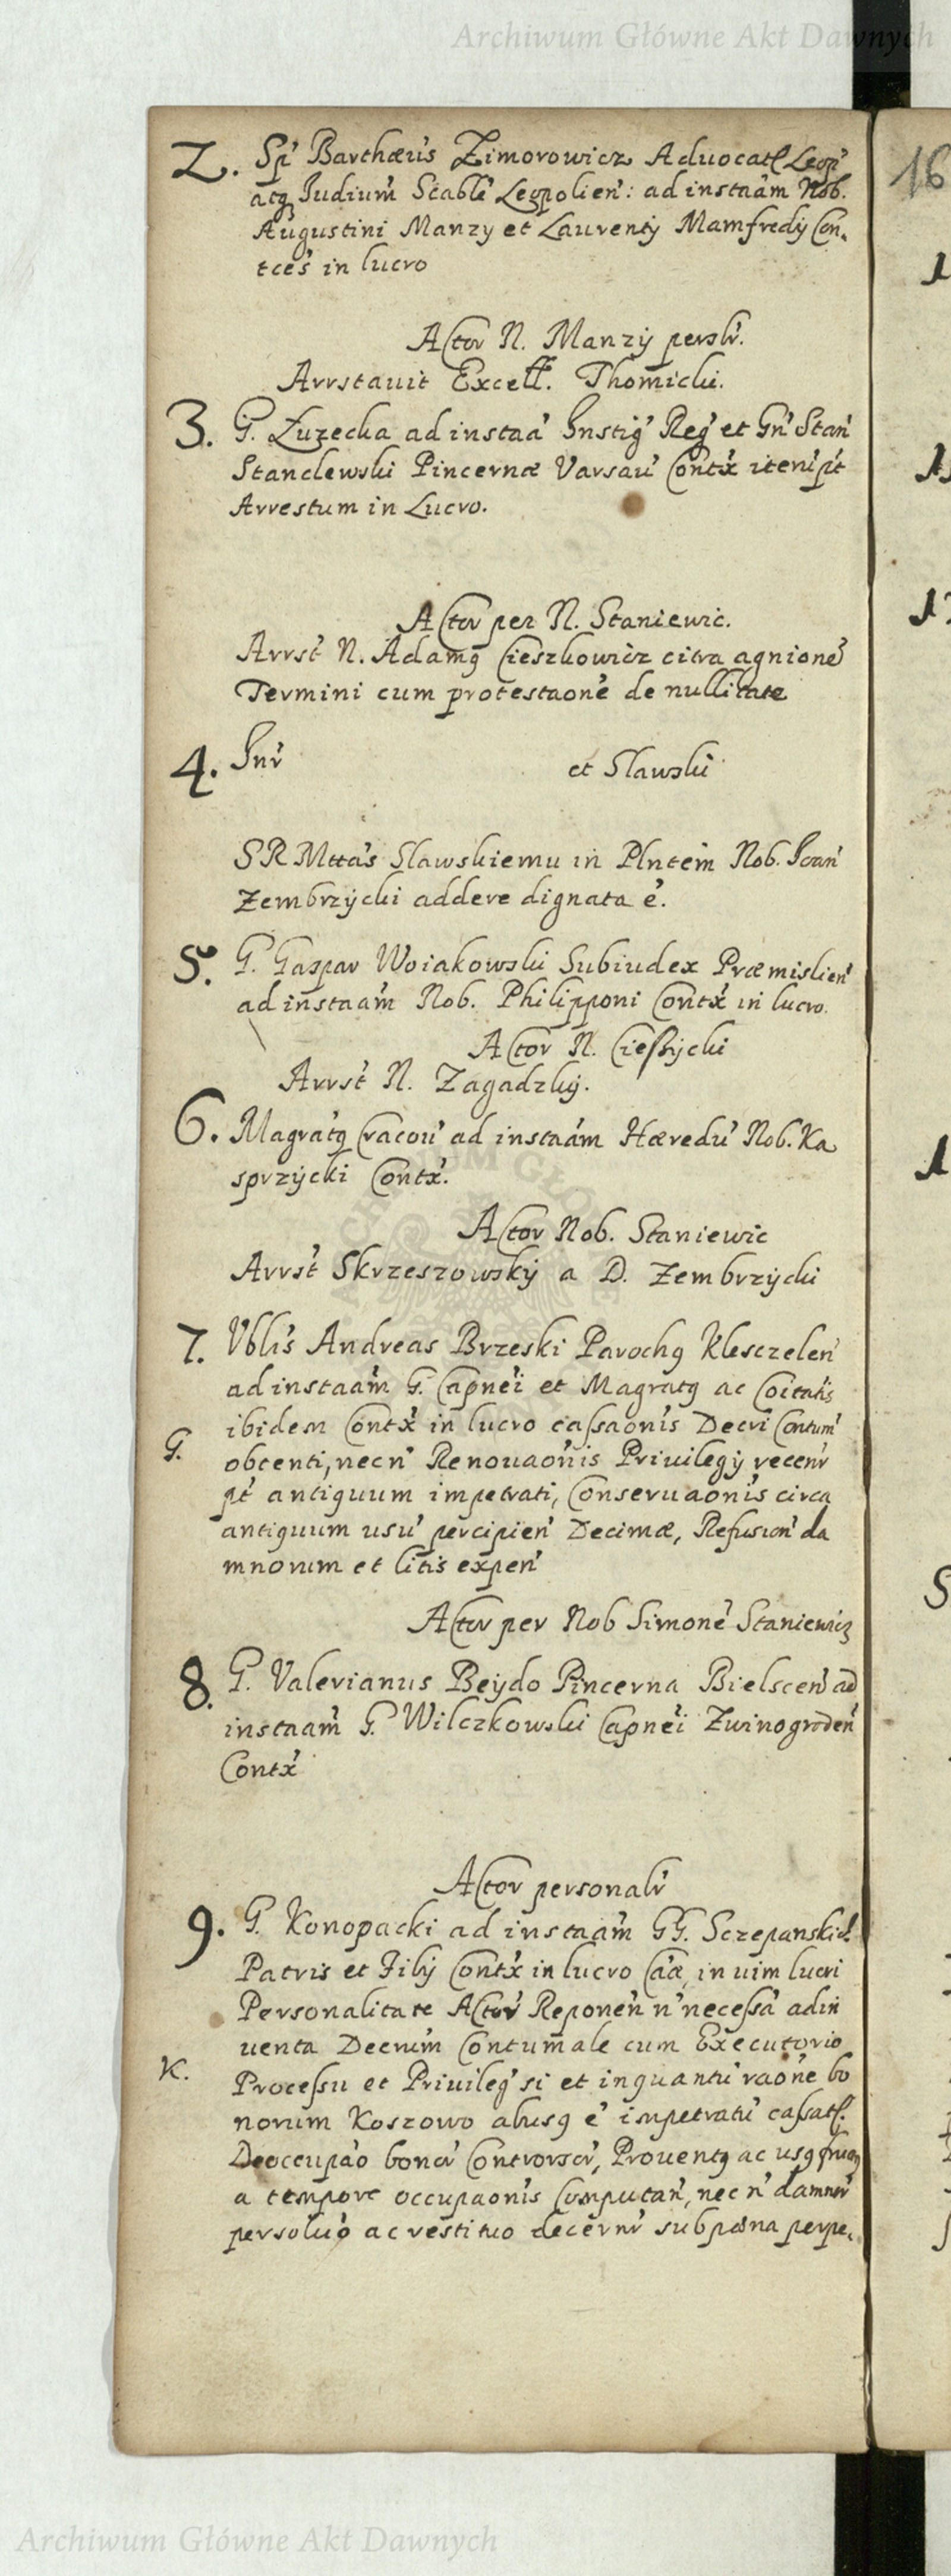 Archiwum Główne Akt Dawnych
2. Sp' Barthæus Zimorowicz Advocat9 Leop'
atq Iudium̃ Scable' Leopolien: ad instaãm Nob.
Augustini Manzy et Laurentÿ Mamfredÿ Con,
tces in lucro
Actor N. Manzÿ persl'r.
Arrstavit Excell. Thomicki.
3. G. Luzecka ad instaã Instig' Reg' et Gn' Stan'
Stanclewski Pincernæ Varsav' Contx̃ iteru' p't
Arrestum in Lucro.
Actor per N. Staniewic.
Arrst' N. Adam9 Cieszkowicz citra agnione'
Termini cum protestaone' de nullitate
4. Inr' et Slawski
SR Mttas Slawskiemu in Plntem Nob. Ioan'
Zembrzÿcki addere dignata e'.
5. G. Gaspar Woiakowski Subiudex Præmislien'
ad instaãm Nob. Philipponi Contx̃ in lucro.
Actor N. Cieszÿcki
Arrst' N. Zagadzkÿ.
6. Magrat9 Cracou' ad instaãm Hæredu' Nob. Ka
sprzÿcki Contx̃.
Actor Nob. Staniewic
Arrst' Skrzeszowskÿ a D. Zembrzÿcki
7. Vblis Andreas Brzeski Paroch9 Klesczelen'
ad instaãm G. Capnei et Magrat9 ac Coitatis
ibidem Contx̃ in lucro cassaonis Decri Contum'
G.
obtenti, necn' Renouaonis Priuilegÿ recenr'
p't antiquum impetrati, Conseruaonis circa
antiquum usu' percipien' Decimæ, Refusion' da
mnorum et litis expen'
Actor per Nob Simone' Staniewicz
8. G. Valerianus Beÿdo Pincerna Bielscen' ad
instaãm G. Wilczkowski Capnei Zwinogroden'
Contx̃
Actor personalr'
9. G. Konopacki ad instaãm GG. Sczepanskich
Patris et Filÿ Contx̃ in lucro Cãa, in uim lucri
Personalitate Actor' Reponen' n' necessa' adin
uenta Decrum Contumale cum Executorio
K.
Processu et Priuileg' si et inquantu' raone bo
norum Koszowo abusq e' impetratu' cassat9.
Deoccupao bonor' Controrsor', Prouent9 ac us9fruct9
a tempore occupaonis Computan', nec n' damnor'
persoluo ac restituo decernr' sub pœna perpe,
16
Archiwum Główne Akt Dawnych